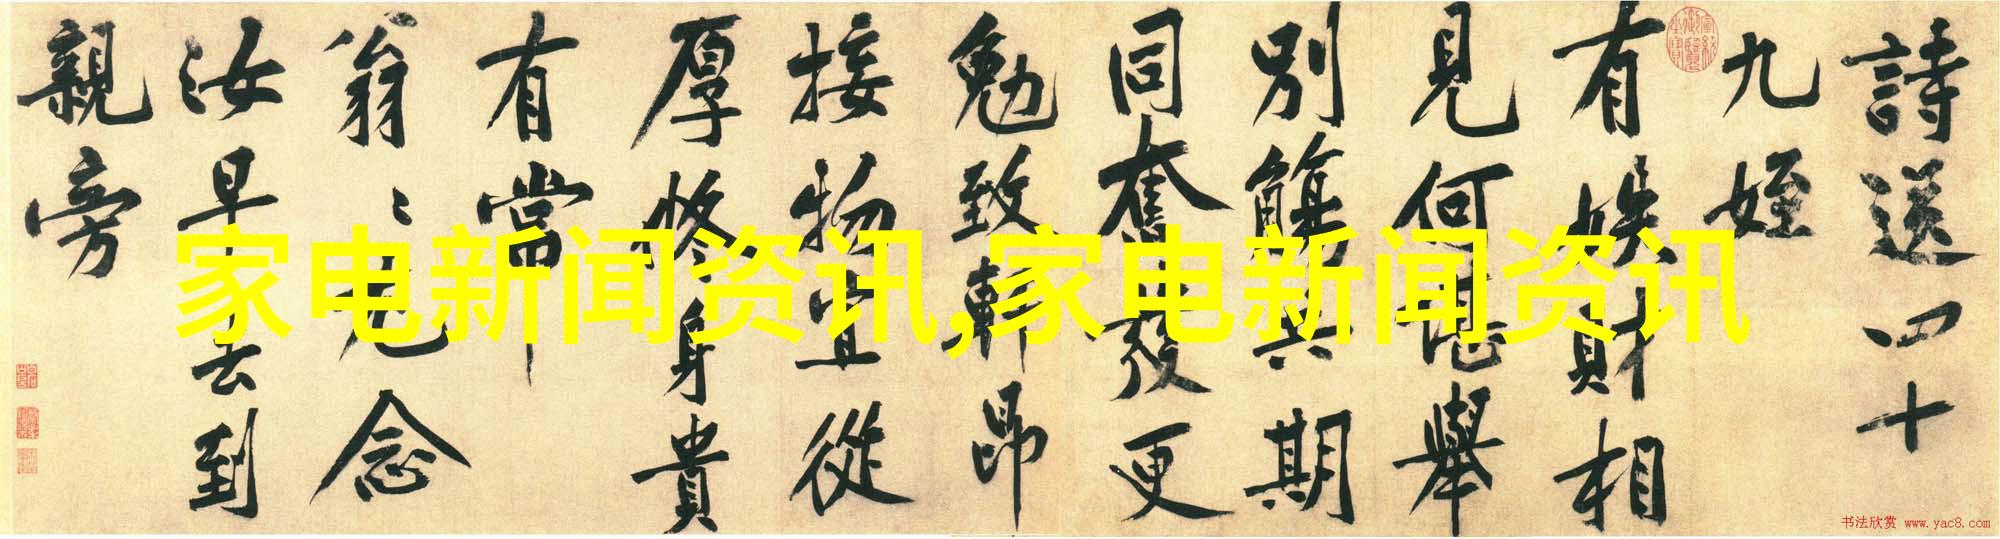 詩送四十
九姪
有姪財相
見何堪舉
別觴與期
同奮發更
勉致軒昂
接物宜從
厚修身貴
有常
翁〻尤念
汝早去到
親旁
家电新闻资讯,家电新闻资讯
书法欣赏 www.yac8.com